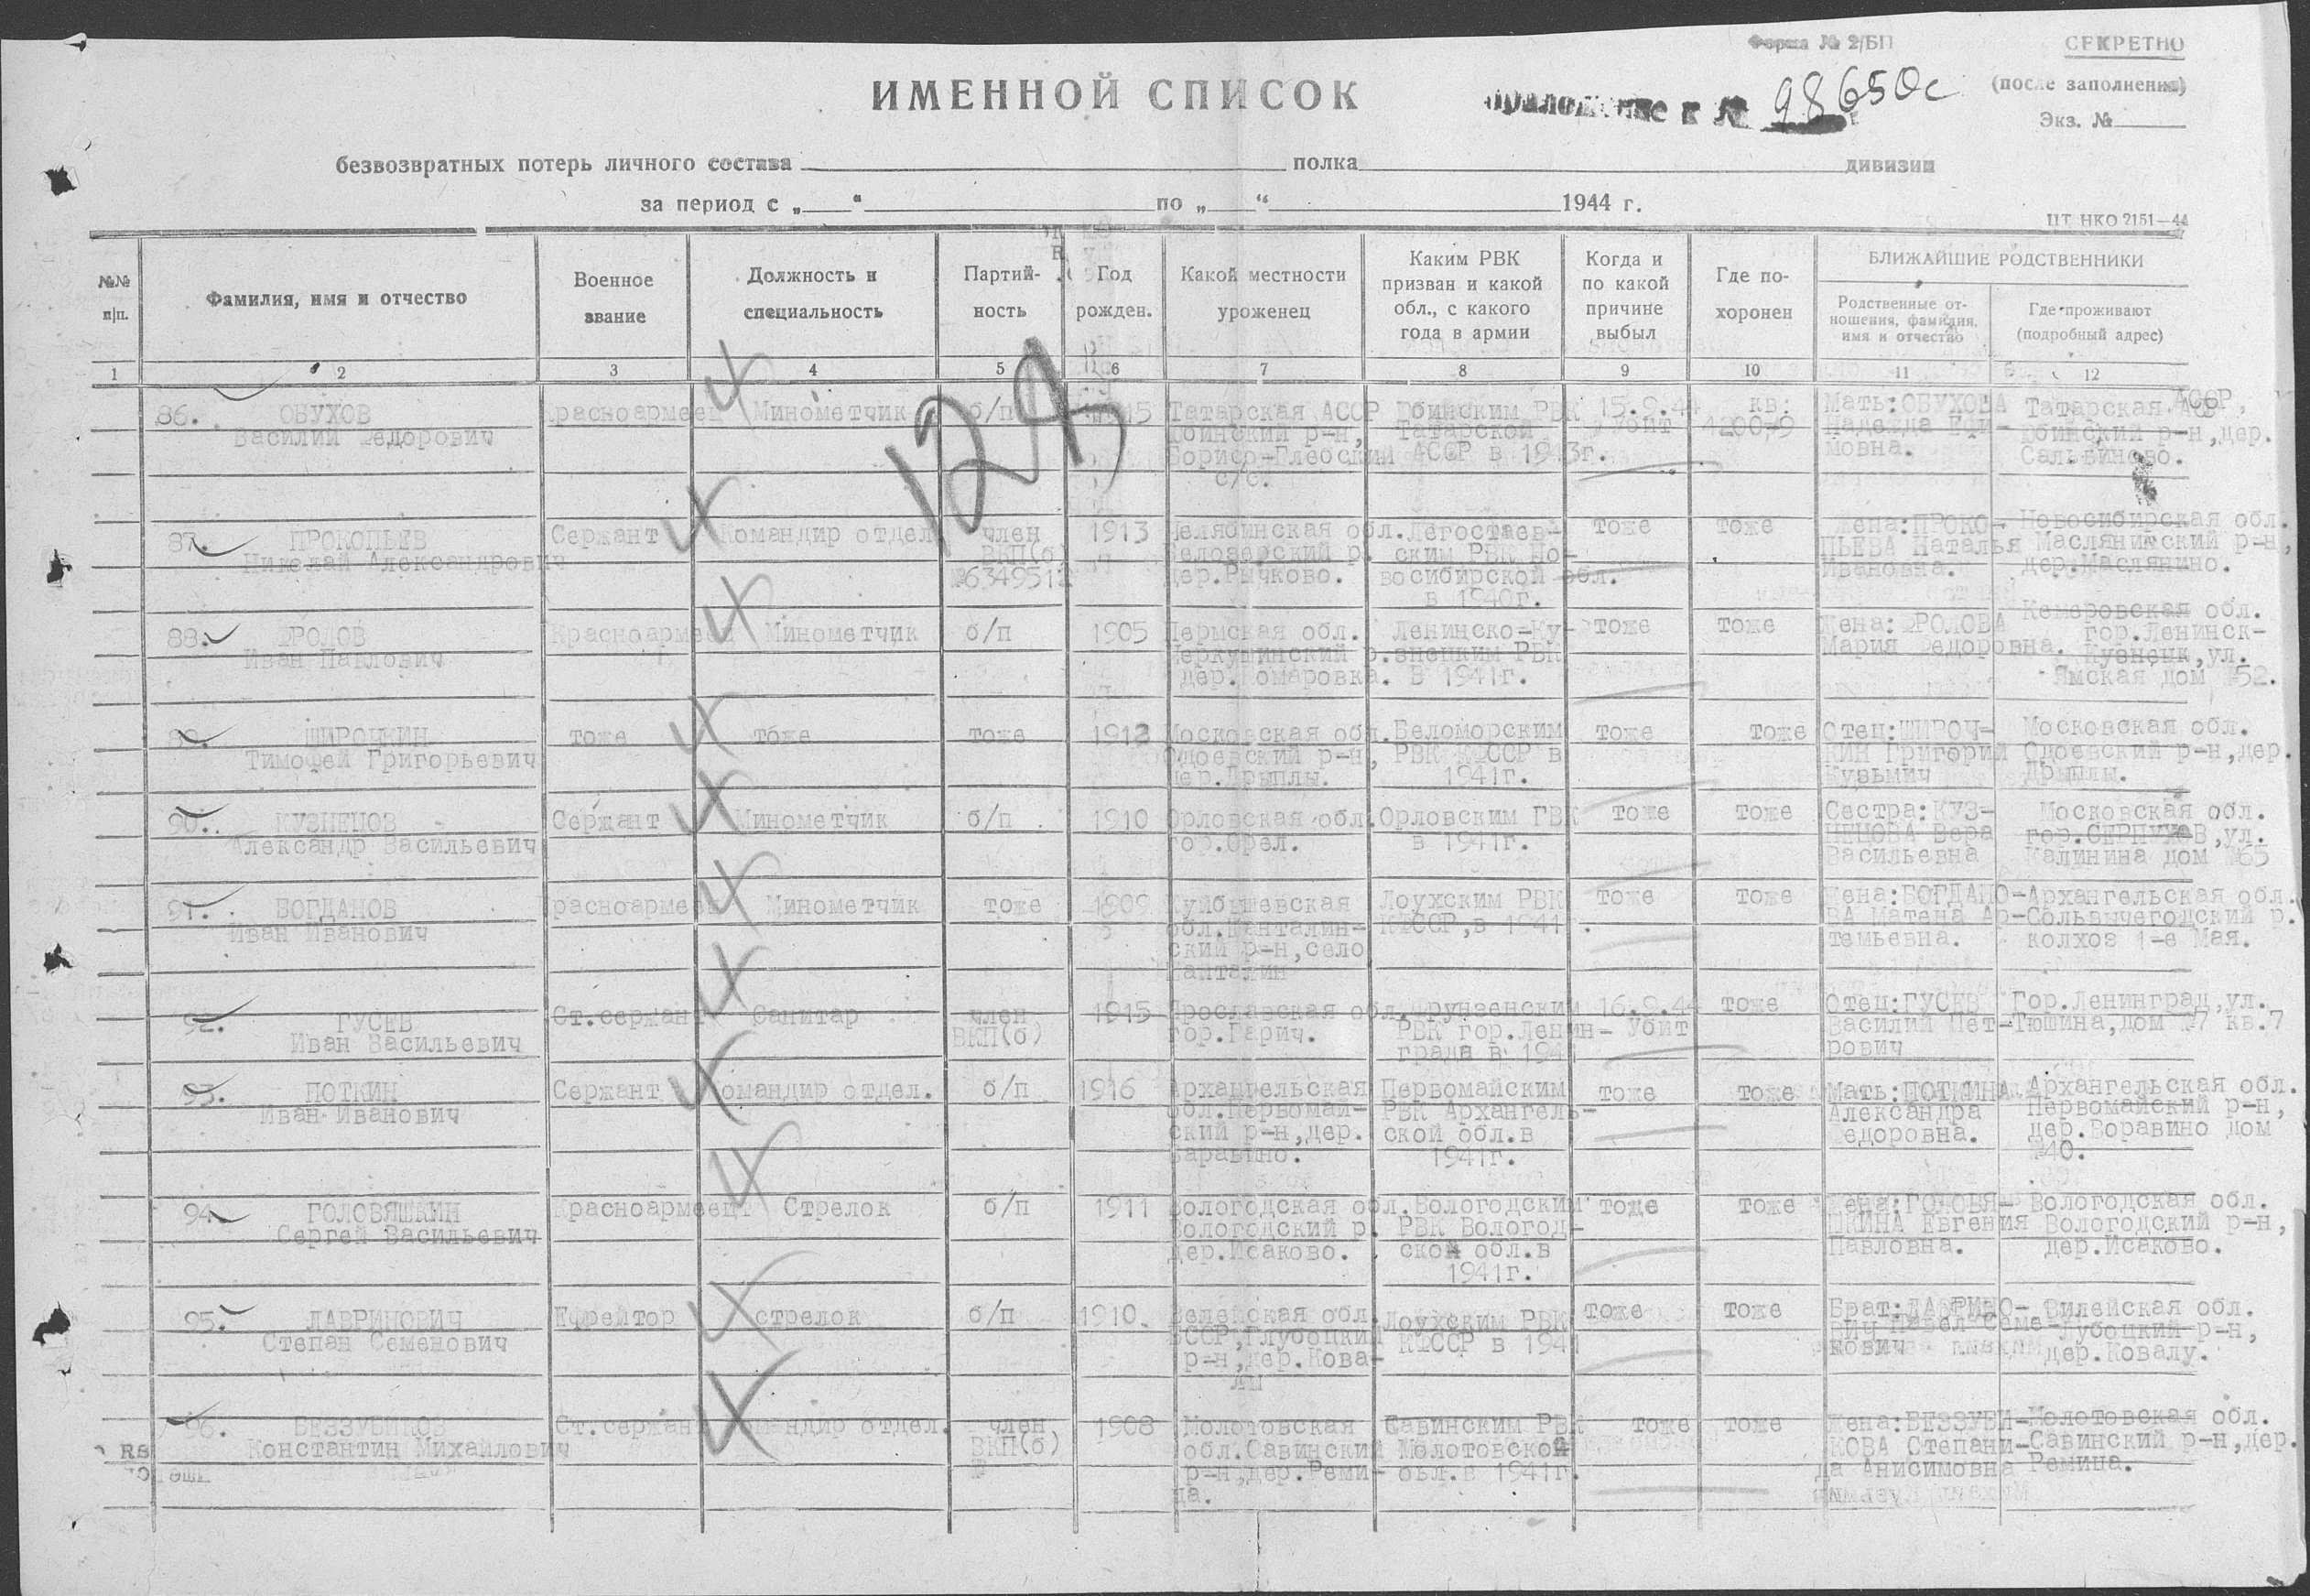 Форма № 2/БП
СЕКРЕТНО
(после заполнения)
Экз. №
ИМЕННОЙ СПИСОК
приложение к № 98650с
безвозвратных потерь личного состава полка дивизии
за период с „ “ по „ “ 1944 г.
ЦТ НКО 2151—44
№№ п/п.
Фамилия, имя и отчество
Военное звание
Должность и специальность
Партий-
ность
Год рожден.
Какой местности уроженец
Каким РВК
призван и какой
обл., с какого
года в армии
Когда и
по какой
причине
выбыл
Где по-
хоронен
БЛИЖАЙШИЕ РОДСТВЕННИКИ
Родственные от-
ношения, фамилия,
имя и отчество
Где проживают
(подробный адрес)
1 2 3 4 5 6 7 8 9 10 11 12
86. ОБУХОВ
Василий Федорович
Красноармеец
Минометчик
б/п
1915
Татарская АССР
р-н,
с/с.
РВК
Татарской
АССР в 1943г.
15.9.44
Убит
кв:
4200-9
Мать: ОБУХОВА
Надежда Ефи-
мовна.
Татарская АССР,
р-н, дер.
87. ПРОКОПЬЕВ
Николай Александрович
Сержант
Командир отдел
член
ВКП(б)
1913
Челябинская обл.
Белозерский р.
дер.Рычково.
Легостаев-
ским РВК Но-
восибирской обл.
в 1940г.
тоже
тоже
Жена:ПРОКО-
ПЬЕВА Наталья
Ивановна.
Новосибирская обл.
Маслянинский р-н,
дер.Маслянино.
88. ФРОЛОВ
Иван Павлович
Красноармеец
Минометчик
б/п
1905
Пермская обл.
дер.Комаровка.
Ленинско-Ку-
знецким РВК
в 1941г.
тоже
тоже
Жена: ФРОЛОВА
Мария Федоровна.
Кемеровская обл.
гор.Ленинск-
Кузнецк,ул.
Ямская дом №52.
89. ШИРОЧКИН
Тимофей Григорьевич
тоже
тоже
тоже
1912
Московская обл.
Одоевский р-н,
дер.Дрыплы.
Беломорским
РВК КФССР в
1941г.
тоже
тоже
Отец:ШИРОЧ-
КИН Григорий
Кузьмич
Московская обл.
Одоевский р-н,дер.
Дрыплы.
90. КУЗНЕЦОВ
Александр Васильевич
Сержант
Минометчик
б/п
1910
Орловская обл.
гор.Орел.
Орловским ГВК
в 1941г.
тоже
тоже
Сестра:КУЗ-
НЕЦОВА Вера
Васильевна
Московская обл.
гор.СЕРПУХОВ,ул.
Калинина дом №65
91. БОГДАНОВ
Иван Иванович
Красноармеец
Минометчик
тоже
1909
Куйбышевская
ский р-н,село
Лоухским РВК
КФССР,в 1941
тоже
тоже
Жена:БОГДАНО-
ВА Матена Ар-
темьевна.
Архангельская обл.
Сольвычегодский р.
колхоз 1-е Мая.
92. ГУСЕВ
Иван Васильевич
Ст.сержант
Санитар
член
ВКП(б)
1915
Ярославская обл.
Фрунзенским
РВК гор.Ленин-
града в 1941
16.9.44
Убит
тоже
Отец:ГУСЕВ
Василий Пет-
рович
Гор.Ленинград,ул.
Тюшина,дом №7 кв.7
93. ПОТКИН
Иван Иванович
Сержант
Командир отдел.
б/п
1916
Архангельская
обл.Первомай-
ский р-н,дер.
Первомайским
РВК Архангель-
ской обл.в
1941г.
тоже
тоже
Мать:ПОТКИНА
Александра
Федоровна.
Архангельская обл.
Первомайский р-н,
дер.Воравино дом
№40.
94. ГОЛОВЯШКИН
Сергей Васильевич
Красноармеец
Стрелок
б/п
1911
Вологодская обл.
Вологодский р.
дер.Исаково.
Вологодским
РВК Вологод-
ской обл.в
1941г.
тоже
тоже
Жена:ГОЛОВЯ-
ШКИНА Евгения
Павловна.
Вологодская обл.
Вологодский р-н,
дер.Исаково.
95. ЛАВРИНОВИЧ
Степан Семенович
Ефрейтор
стрелок
б/п
1910.
обл.
БССР,Глубоцкий
р-н,дер.Кова-
лы
Лоухским РВК
КФССР в 1941
тоже
тоже
Брат:ЛАВРИНО-
ВИЧ Павел Семе-
нович
Вилейская обл.
Глубоцкий р-н,
дер.Ковалу.
96. БЕЗЗУБИКОВ
Константин Михайлович
Ст.сержант
Командир отдел.
член
ВКП(б)
№
1908
Молотовская
обл.Савинский
р-н,дер.Реми-
на.
Савинским РВК
Молотовской
обл.в 1941г.
тоже
тоже
Жена:БЕЗЗУБИ-
КОВА Степани-
да Анисимовна
Молотовская обл.
Савинский р-н,дер.
Ремина.